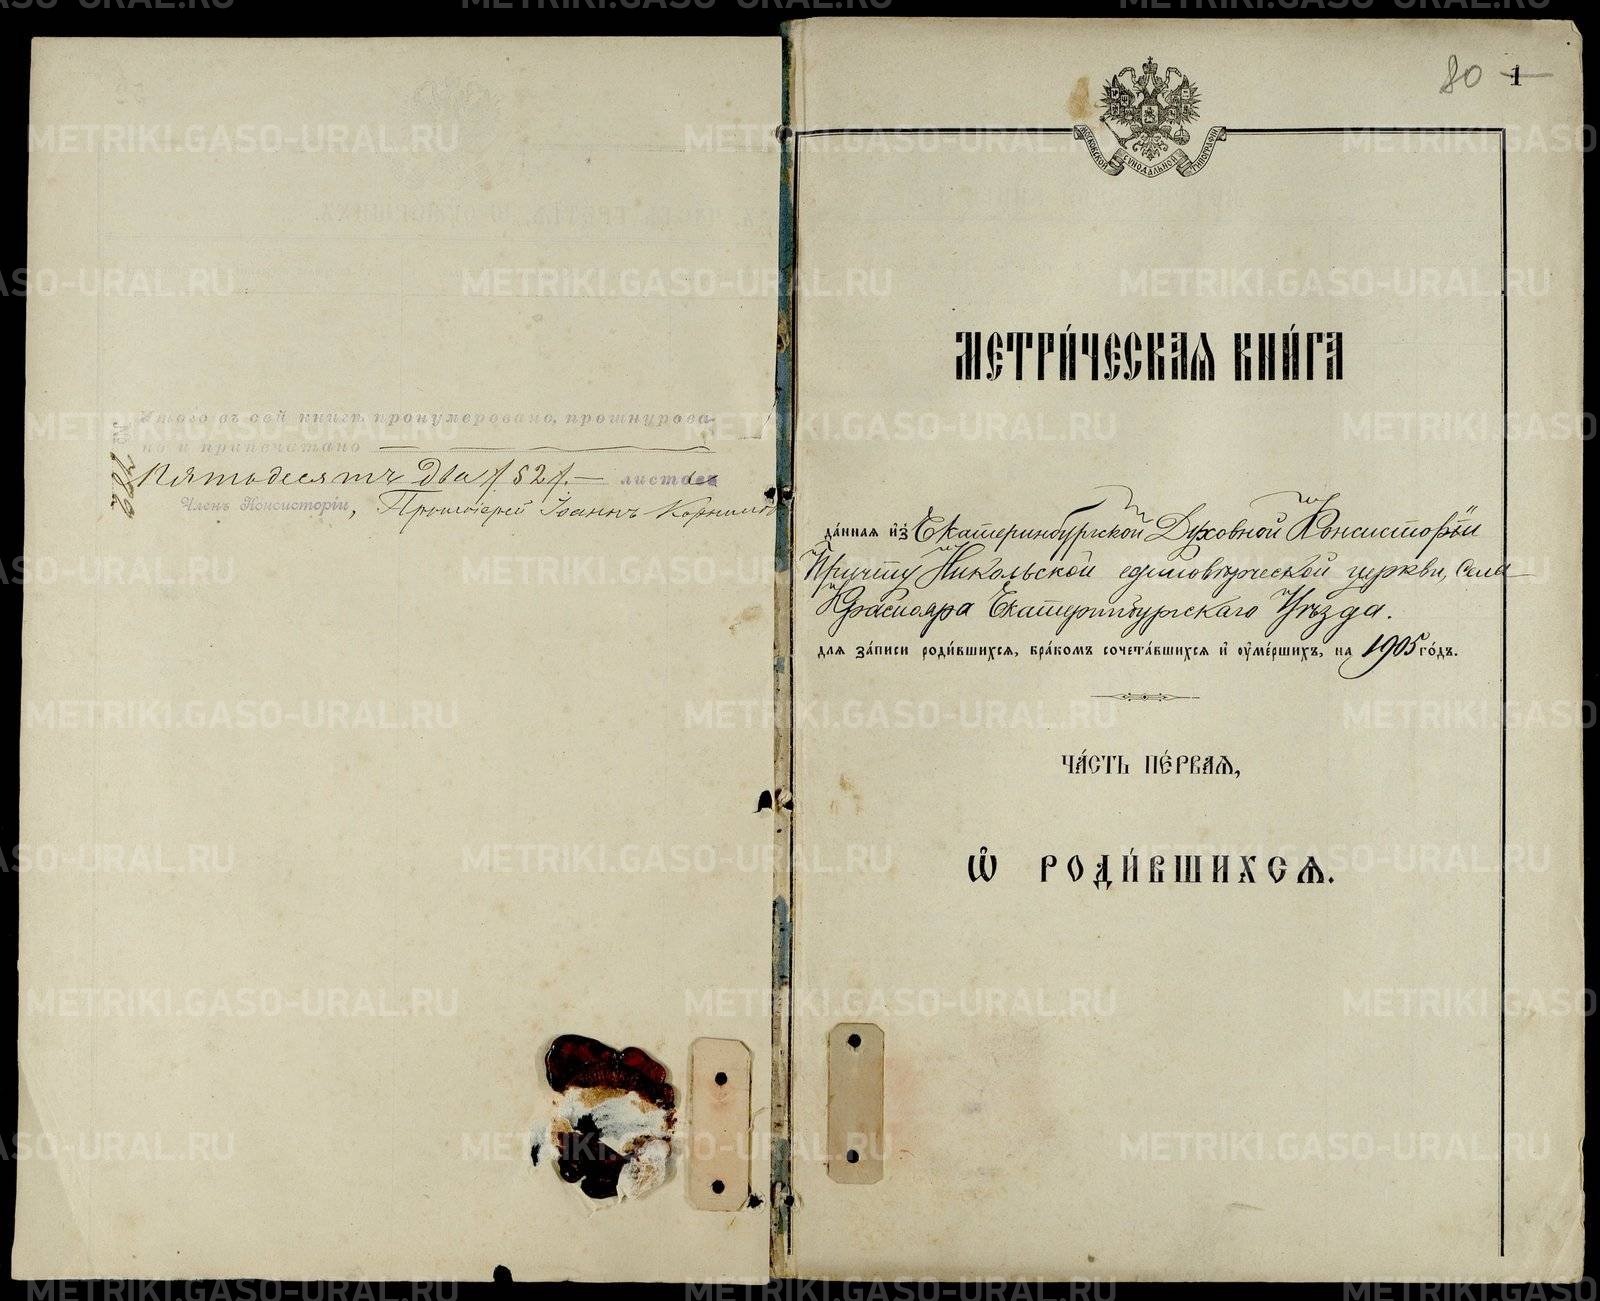 Итого въ сей книгѣ пронумеровано, прошнурова-
но и припечатано
Пятьдесятъ два /52/. — листовъ
Членъ Консисторіи, Протоіерей Іоаннъ Корнилов
№ 722
80 1
МОСКОВСКОЙ СѴНОДАЛЬНОЙ ТИПОГРАФІИ
МЕТРИ́ЧЕСКАѦ КНИ́ГА
да́нная и҆з̾ Екатеринбургской Духовной Консисторіи
Причту Никольской единовѣрческой церкви, села
Краснояра Екатеринбургскаго Уѣзда.
для за́писи роди́вшихсѧ, бра́комъ сочета́вшихсѧ и҆ ᲂу҆ме́ршихъ, на 1905 го́дъ.
ЧА́СТЬ ПЕ́РВАѦ,
Ѽ РОДИ́ВШИХСѦ.
METRIKI.GASO-URAL.RU